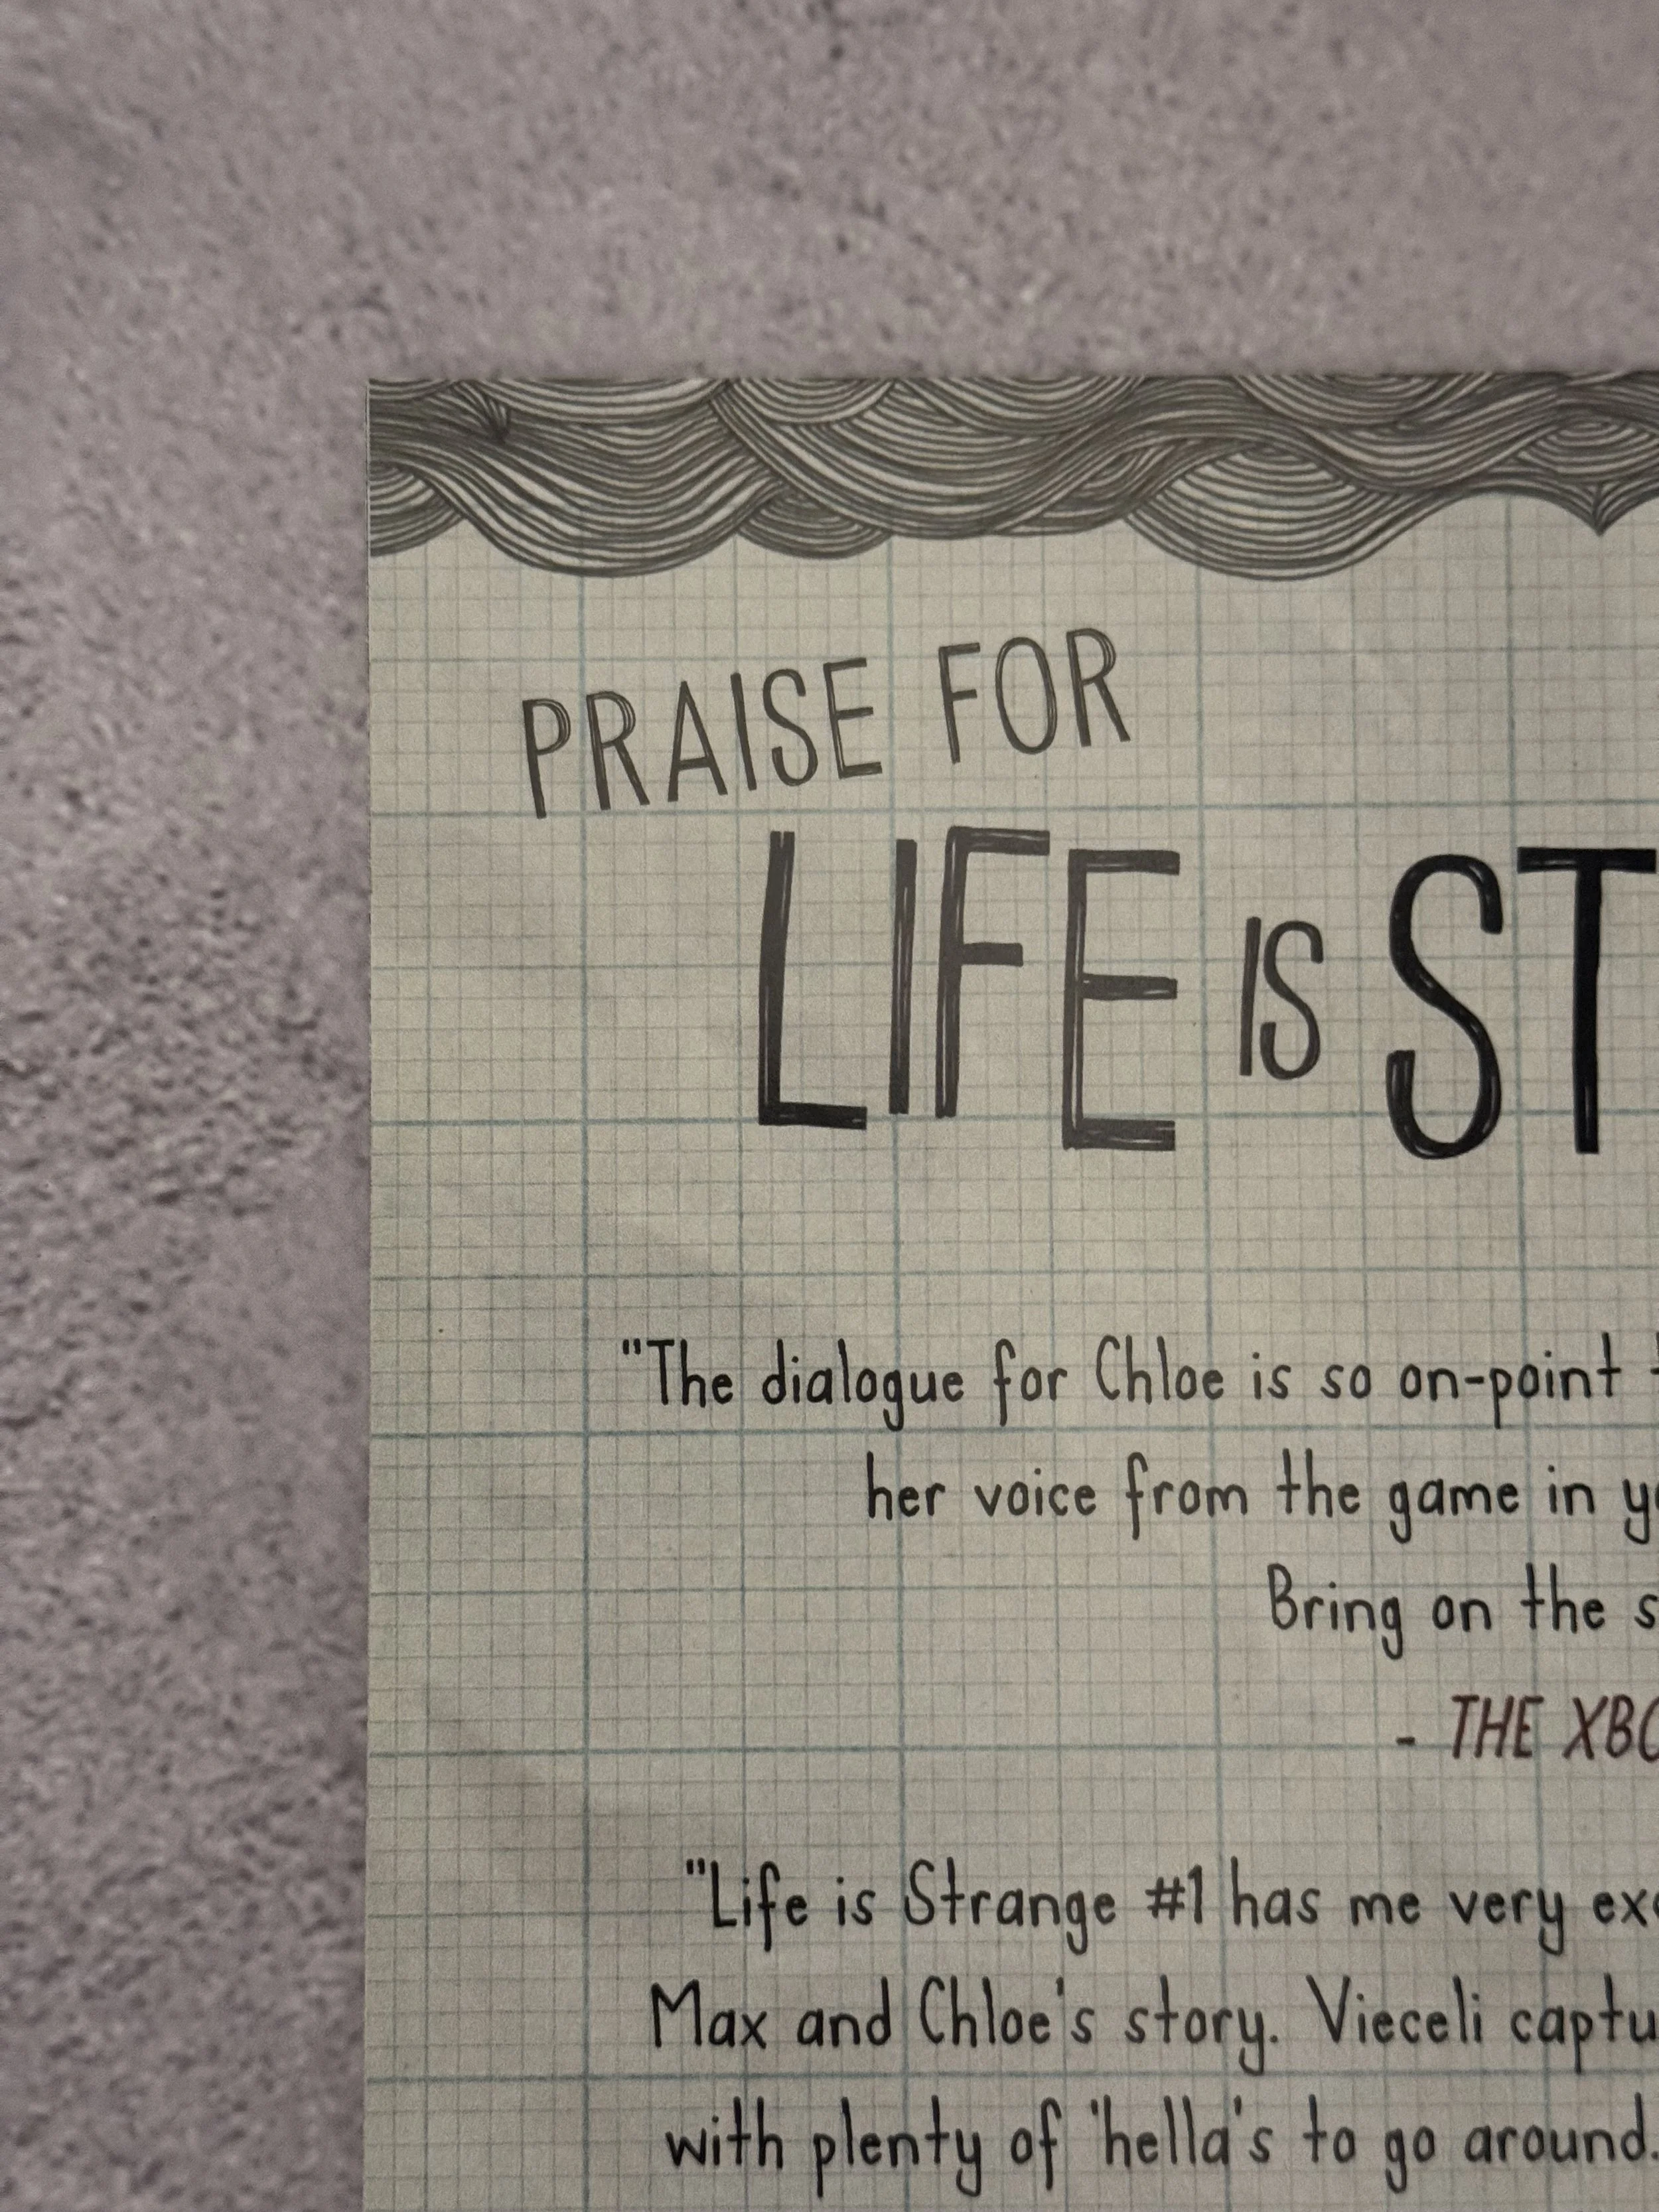 PRAISE FOR
LIFE IS ST
"The dialogue for Chloe is so on-point
her voice from the game in
Bring on the
- THE
"Life is Strange #1 has me very
Max and Chloe's story. Vieceli
with plenty of 'hella's to go around.